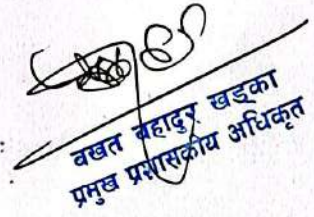 वखत बहादुर खड्का
प्रमुख प्रशासकीय अधिकृत